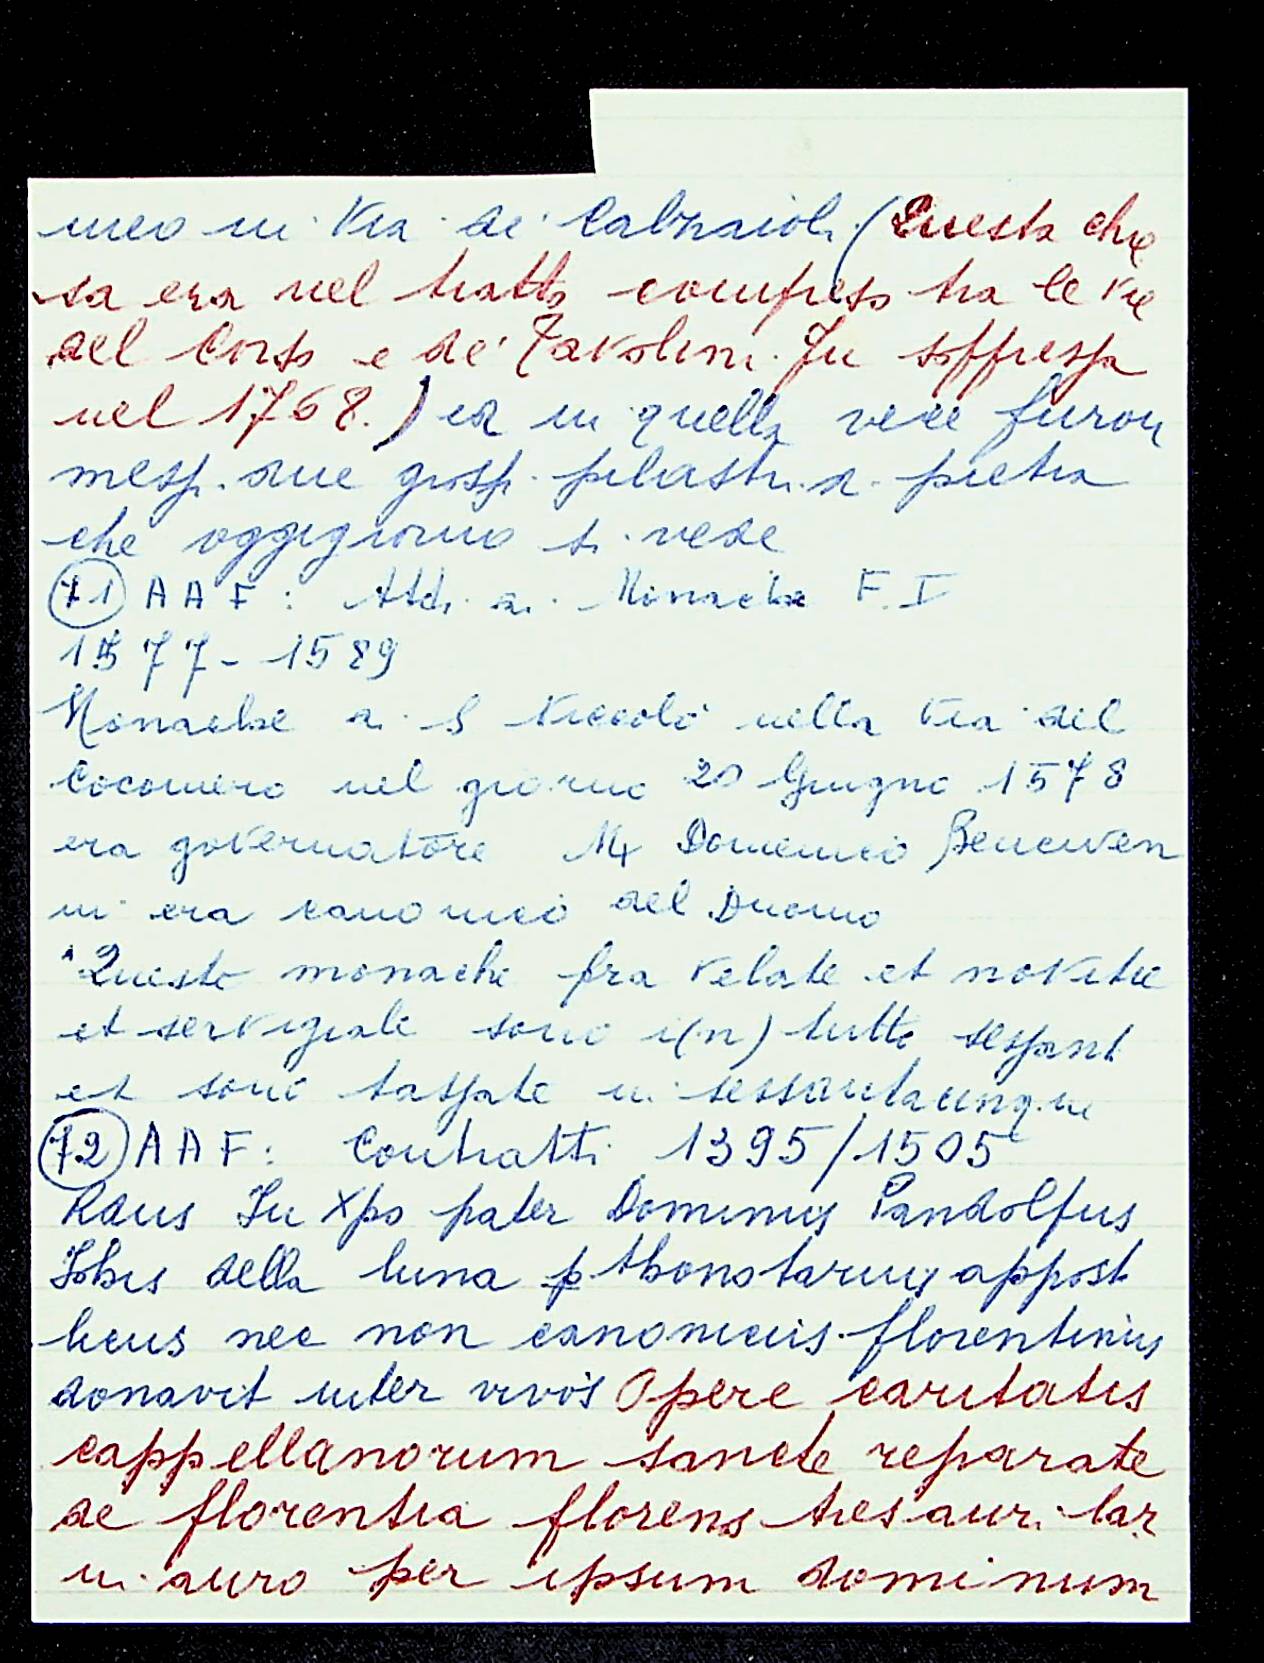 meo in via de' Calzaioli (Questa chie
sa era nel tratto compreso tra le vie
del Corso e de' Tavolini. Fu soppressa
nel 1768.) ed in quella vece furon
messi due grossi pilastri di pietra
che oggigiorno si vede
(71) A A F: Atti di Monache F. I
1577-1589
Monache di S Niccolò nella via del
Cocomero nel giorno 20 Giugno 1578
era governatore Mr Domenico Benewen
ni era canonico del Duomo
"Queste monache fra velate et novitie
et servigiale sono i(n) tutto sessant
et sono tassate in sessantacinque
(72) A A F: Contratti 1395/1505
Rdus In Xpo pater Dominus Pandolfus
Iohis della luna pthonotarius appost
licus nec non canonicus florentinus
donavit inter vivos Opere caritatis
cappellanorum sancte reparate
de florentia florenos tres auri lar
in auro per ipsum dominum